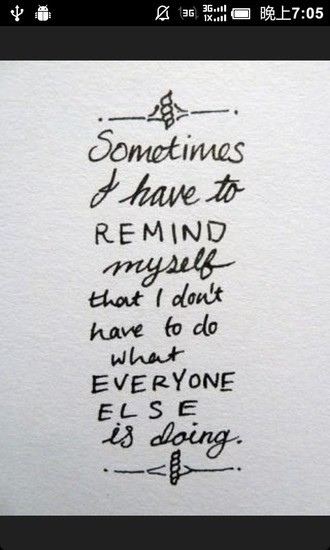 3G
3G
1X
晚上7:05
Sometimes
I have to
REMIND
myself
that I don't
have to do
what
EVERYONE
ELSE
is doing.